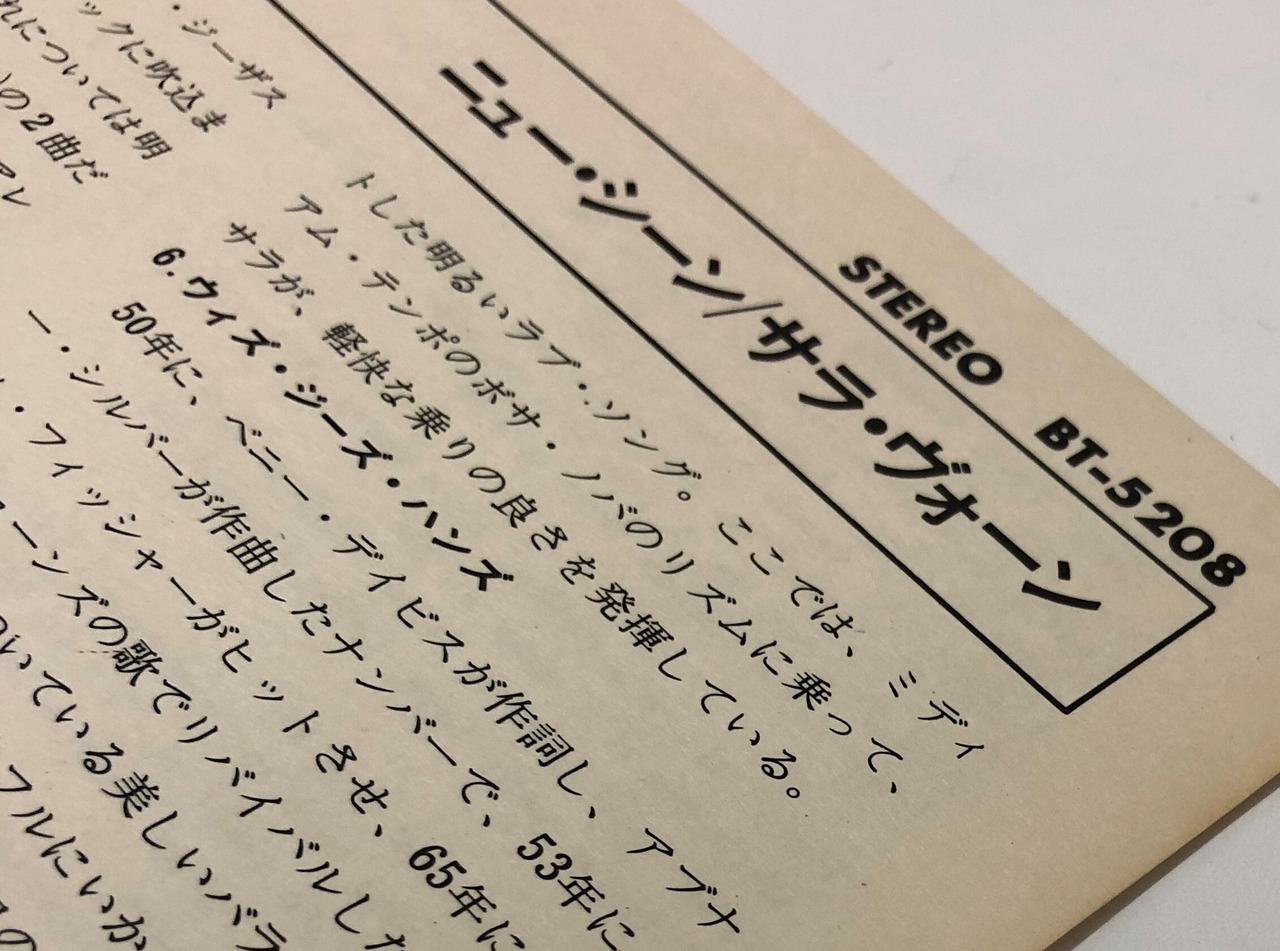 STEREO BT-5208
ニュー・シーン/サラ・ヴォーン
・ジーザス
ックに吹込ま
れについては明
の2曲だ
アレ
トした明るいラブ・ソング。ここでは、ミディ
アム・テンポのボサ・ノバのリズムに乗って、
サラが、軽快な乗りの良さを発揮している。
6.ウィズ・ジーズ・ハンズ
50年に、ベニー・デイビスが作詞し、アブナ
ー・シルバーが作曲したナンバーで、53年に
・フィッシャーがヒットさせ、65年に
ーンズの歌でリバイバルした
いている美しいバラ
フルにいか